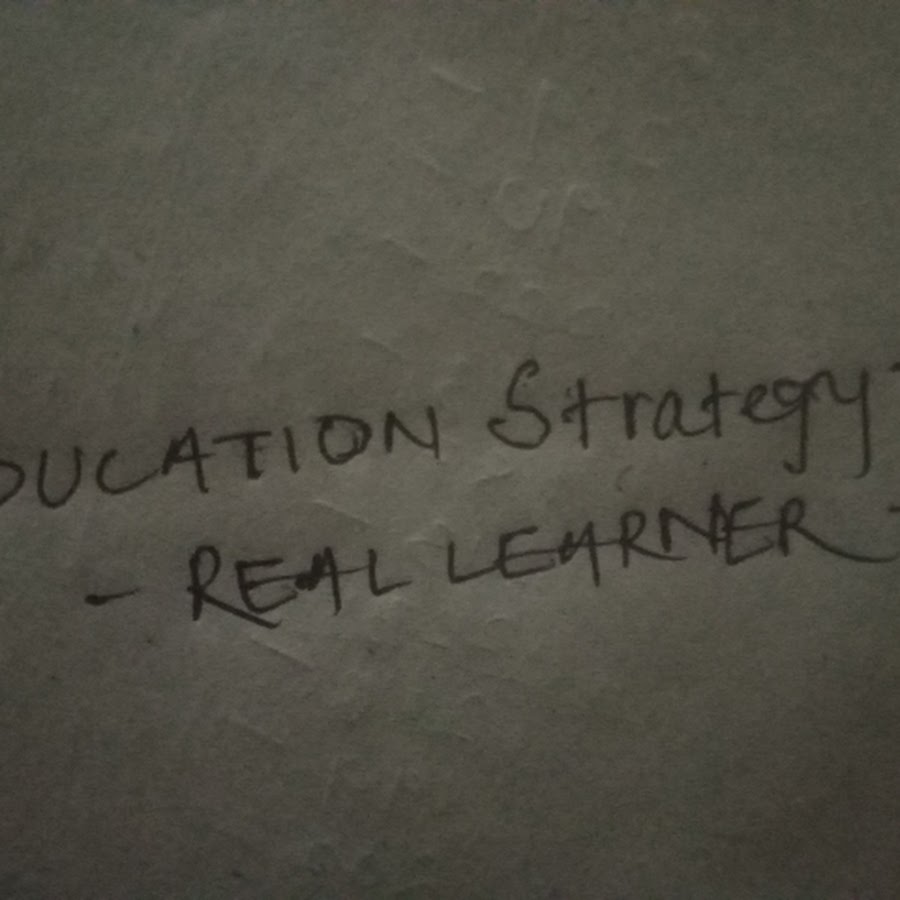 DUCATION Strategy
- REAL LEARNER -